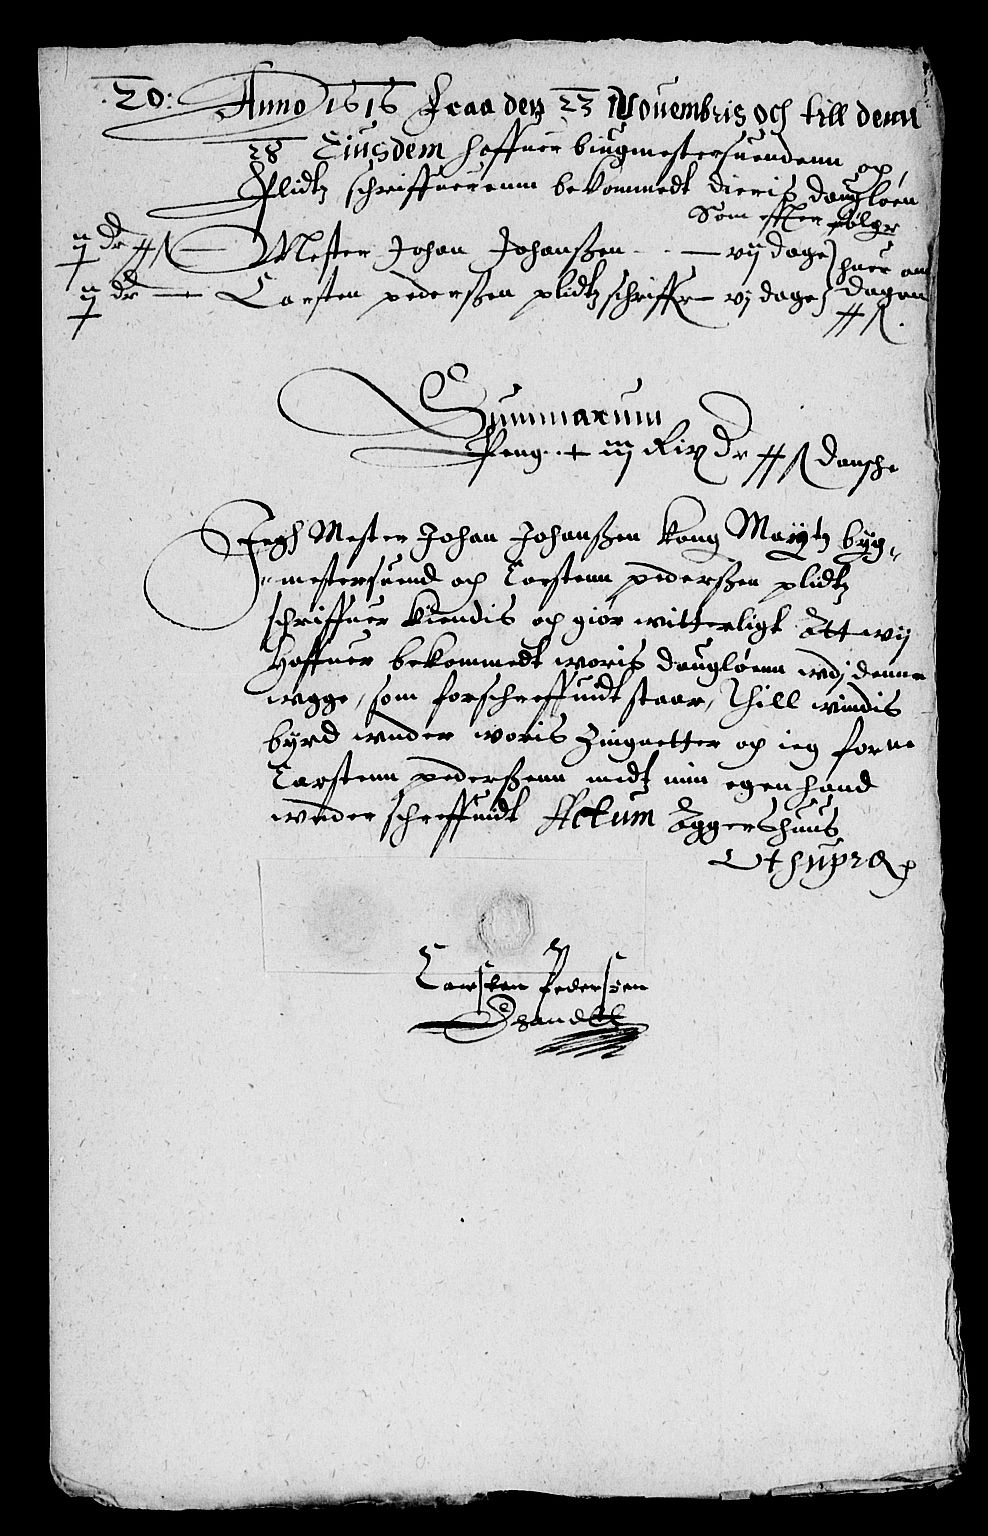 20. Anno 1616 Fraa den 23 Nouembris och till denn
28 Eiusdem haffuer biugmestersuendenn och
Plidtz schriffuerenn bekommedt dieris dauglöen
Som effter følger
j dr Mester Johan Johanßen - vij dage huer om
j dr Carsten pederßen plidtzschriffr vj dage dagen
Summarum
Peng iij Rix dr ß dansche
Jegh Mester Johan Johanßen Kong Maytz byg-
mestersuend och Carstenn pederßen plidtz
schriffuer Kiendis och giör witterligt Att wij
Haffuer bekommedt woris dauglöenn wdj denne
wgge, som forschreffuidt staar, Thill windis
byrd wnder woris Zingnetter och ieg forne
Carstenn pederßenn medt min egen hand
wnderschreffuidt Actum Aggershuus
Vt supra
Carsten Pederßen
Ehandtt